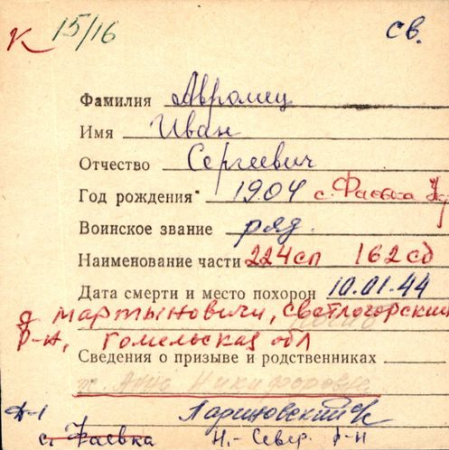 К 15/16 св.
Фамилия Авромец
Имя Иван
Отчество Сергеевич
Год рождения 1904 с. Фаевка
Воинское звание ряд.
Наименование части 224сп 162сд
Дата смерти и место похорон 10.01.44
д Мартыновичи, Светлогорский
р-н, Гомельская обл
Сведения о призыве и родственниках
Никифоровна
с. Фаевка Н.-Север. р-н